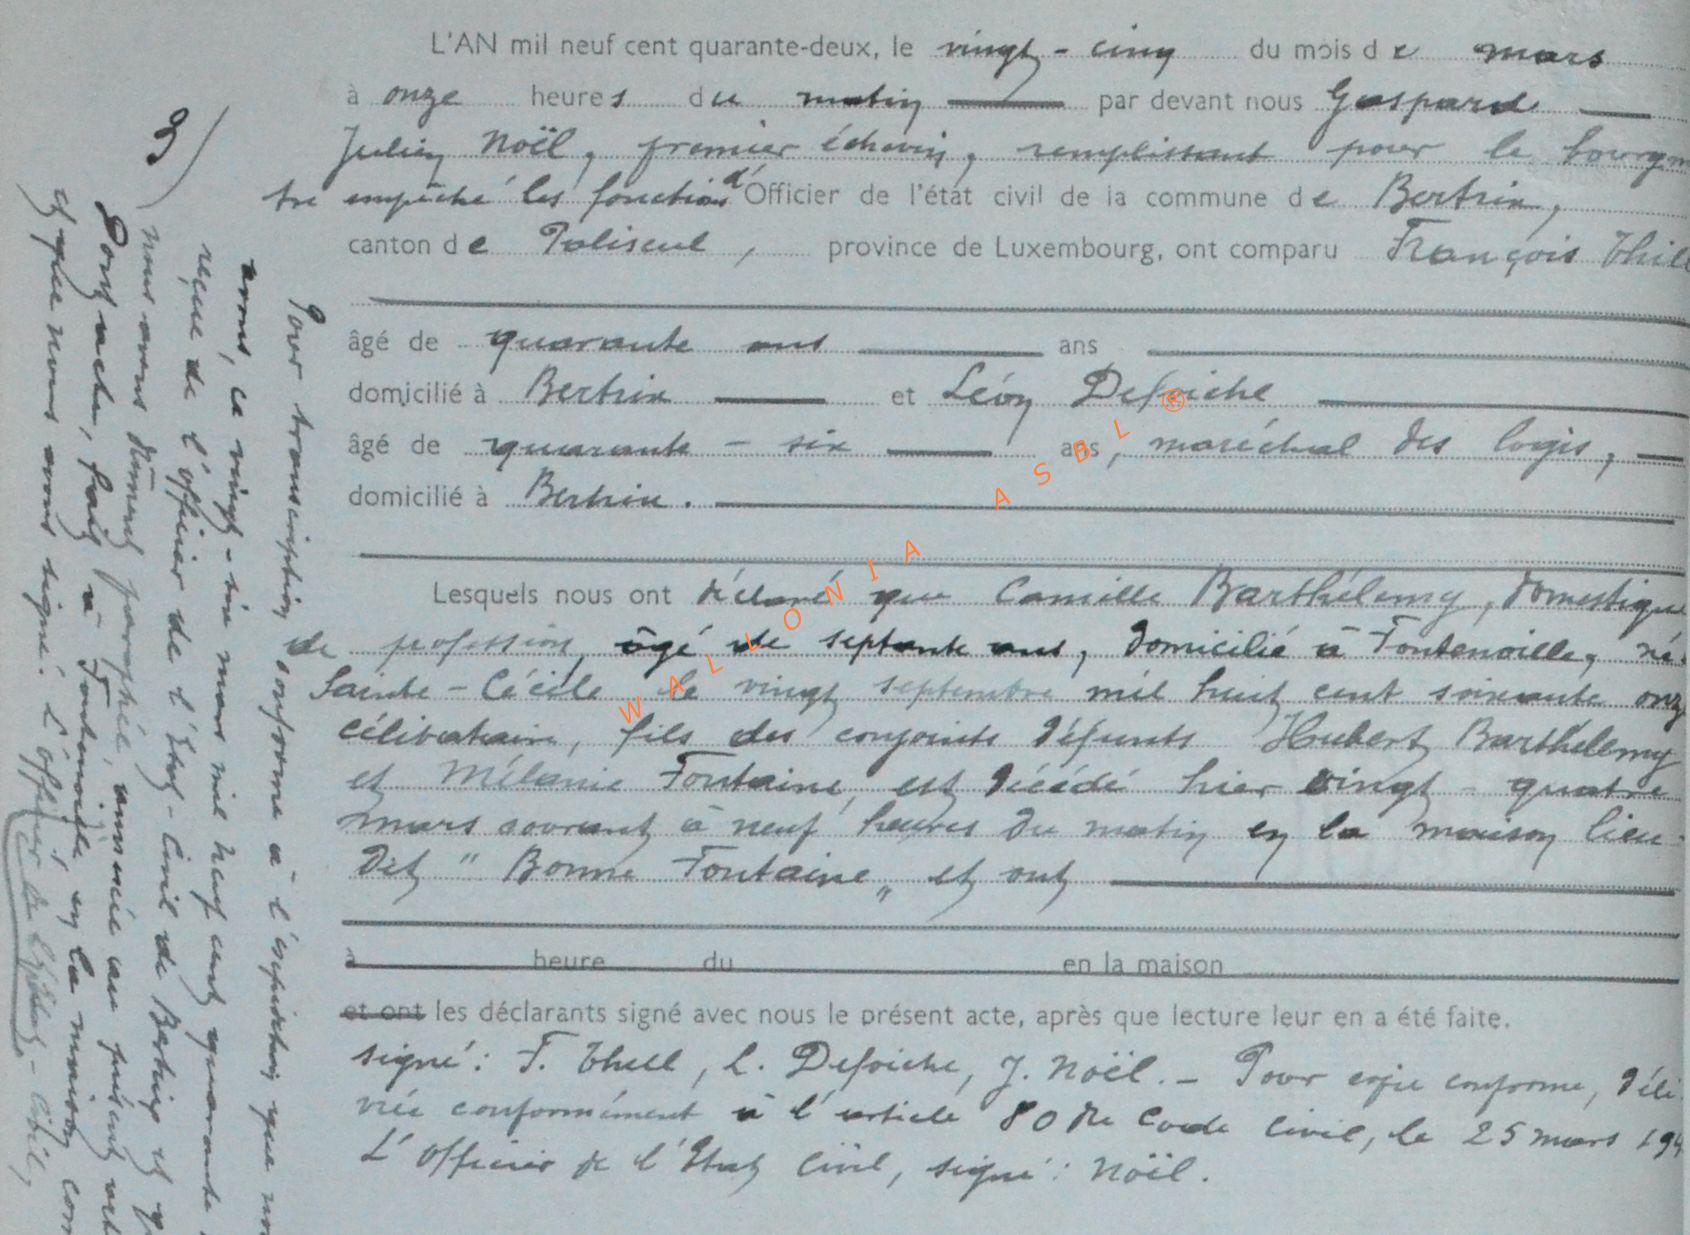 L'AN mil neuf cent quarante-deux, le vingt-cinq du mois de mars
à onze heures du matin par devant nous Gaspard
Julien Noël, premier échevin, remplissant pour le bourgm
tre empêché les fonctions d'Officier de l'état civil de la commune de Bertrix,
canton de Paliseul, province de Luxembourg, ont comparu François Thill
âgé de quarante ans ans
domicilié à Bertrix et Léon Defoiche
âgé de quarante-six ans, maréchal des logis,
domicilié à Bertrix.
Lesquels nous ont déclaré que Camille Barthélemy, domestique
de profession, âgé de septante ans, domicilié à Fontenoille, né à
Sainte-Cécile le vingt septembre mil huit cent soixante onz
célibataire, fils des conjoints défunts Hubert Barthélemy
et Mélanie Fontaine, est décédé hier vingt-quatre
mars courant à neuf heures du matin en la maison lieu-
dit "Bonne Fontaine" et ont
à heure du en la maison
et ont les déclarants signé avec nous le présent acte, après que lecture leur en a été faite.
signé: F. Thill, L. Defoiche, J. Noël. - Pour copie conforme, déli-
vrée conformément à l'article 80 du Code civil, le 25 mars 194
L'Officier de l'Etat Civil, signé: Noël.
Pour transcription conforme à l'expédition que no
avons, ce vingt-six mars mil neuf cent quarante
reçue de l'officier de l'Etat-Civil de Bertrix et q
nous avons dûment paraphée, annexée au présent
Dont acte, fait à Fontenoille en la maison com
et que nous avons signé. L'officier de l'Etat-Civil,
3)
WALLONIA ASBL ®